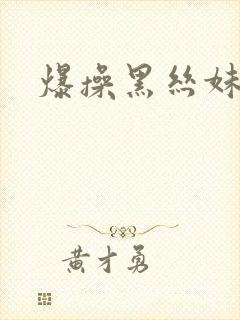 爆操黑丝妹
黄才勇